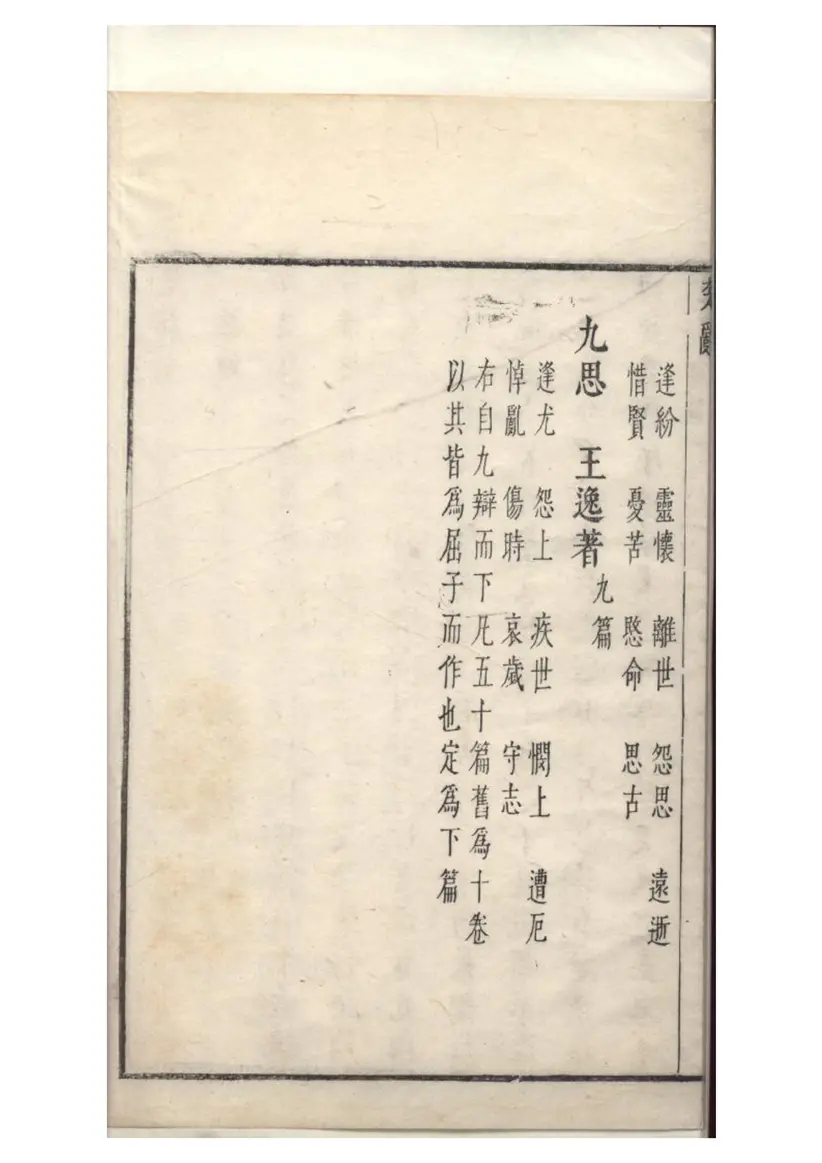 楚辭
逢紛 靈懷 離世 怨思 遠逝
惜賢 憂苦 愍命 思古
九思 王逸著 九篇
逢尤 怨上 疾世 憫上 遭厄
悼亂 傷時 哀歲 守志
右自九辯而下凡五十篇舊爲十卷
以其皆爲屈子而作也定爲下篇